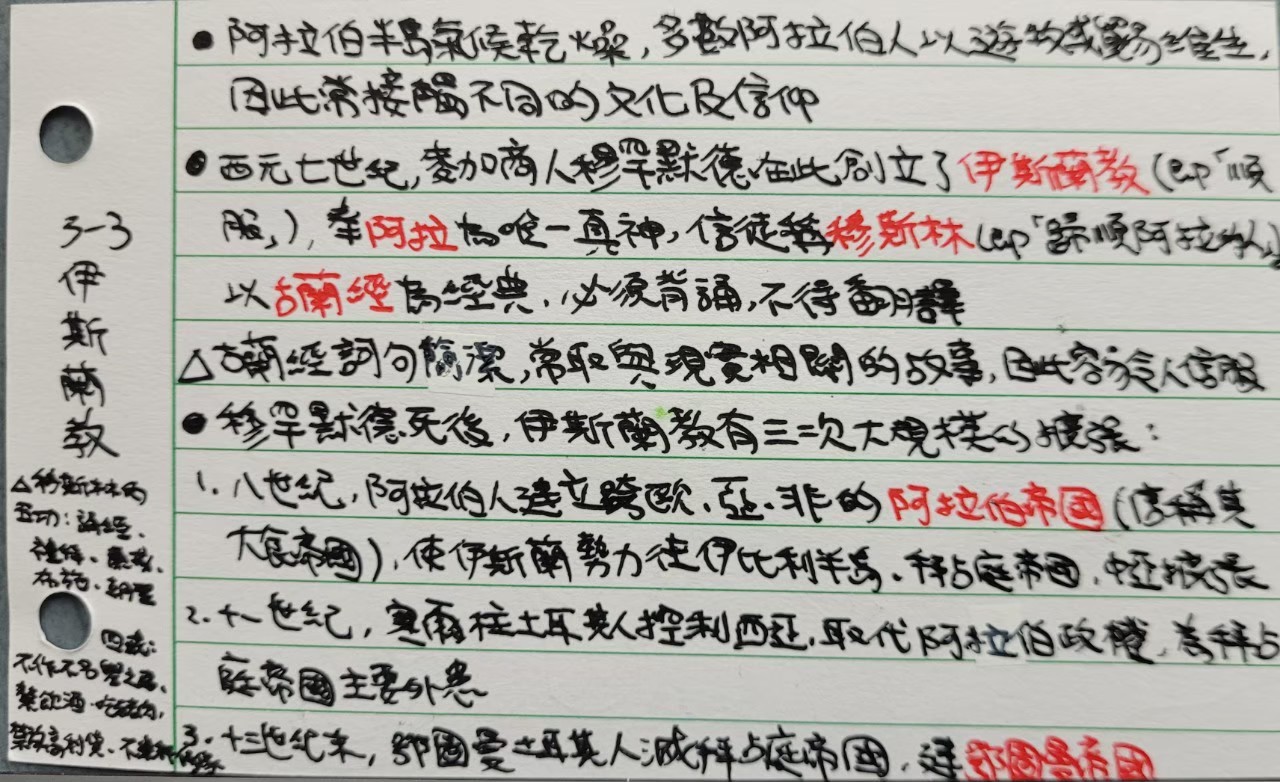 3-3
伊
斯
蘭
教
△穆斯林的
五功：誦經、
禮拜、齋戒、
布施、朝聖
四戒：
禁飲酒、吃豬肉、
禁放高利貸、不
● 阿拉伯半島氣候乾燥，多數阿拉伯人以遊牧或貿易維生，
因此常接觸不同的文化及信仰
● 西元七世紀，麥加商人穆罕默德在此創立了伊斯蘭教（即「順
服」），奉阿拉為唯一真神，信徒稱穆斯林（即「歸順阿拉的人」）
以古蘭經為經典，必須背誦，不得翻譯
△古蘭經詞句簡潔，常取與現實相關的故事，因此容易令人信服
● 穆罕默德死後，伊斯蘭教有三次大規模的擴張：
1. 八世紀，阿拉伯人建立跨歐、亞、非的阿拉伯帝國（唐稱其
大食帝國），使伊斯蘭勢力往伊比利半島、拜占庭帝國、中亞擴張
2. 十一世紀，塞爾柱土耳其人控制西亞，取代阿拉伯政權，為拜占
庭帝國主要外患
3. 十三世紀末，鄂圖曼土耳其人滅拜占庭帝國，建鄂圖曼帝國